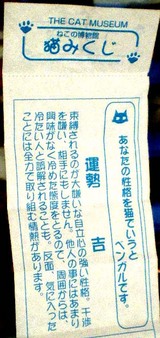 THE CAT MUSEUM
ねこの博物館
猫みくじ
あなたの性格を猫でいうと
ベンガルです。
運勢　吉
束縛されるのが大嫌いな自立心の強い性格。干渉
を嫌い、相手にもしません。他人の事にはあまり
興味がなく冷めた態度をとるので、周囲からは、
冷たい人と誤解されることも。反面、気に入った
ことには全力で取り組む情熱があります。